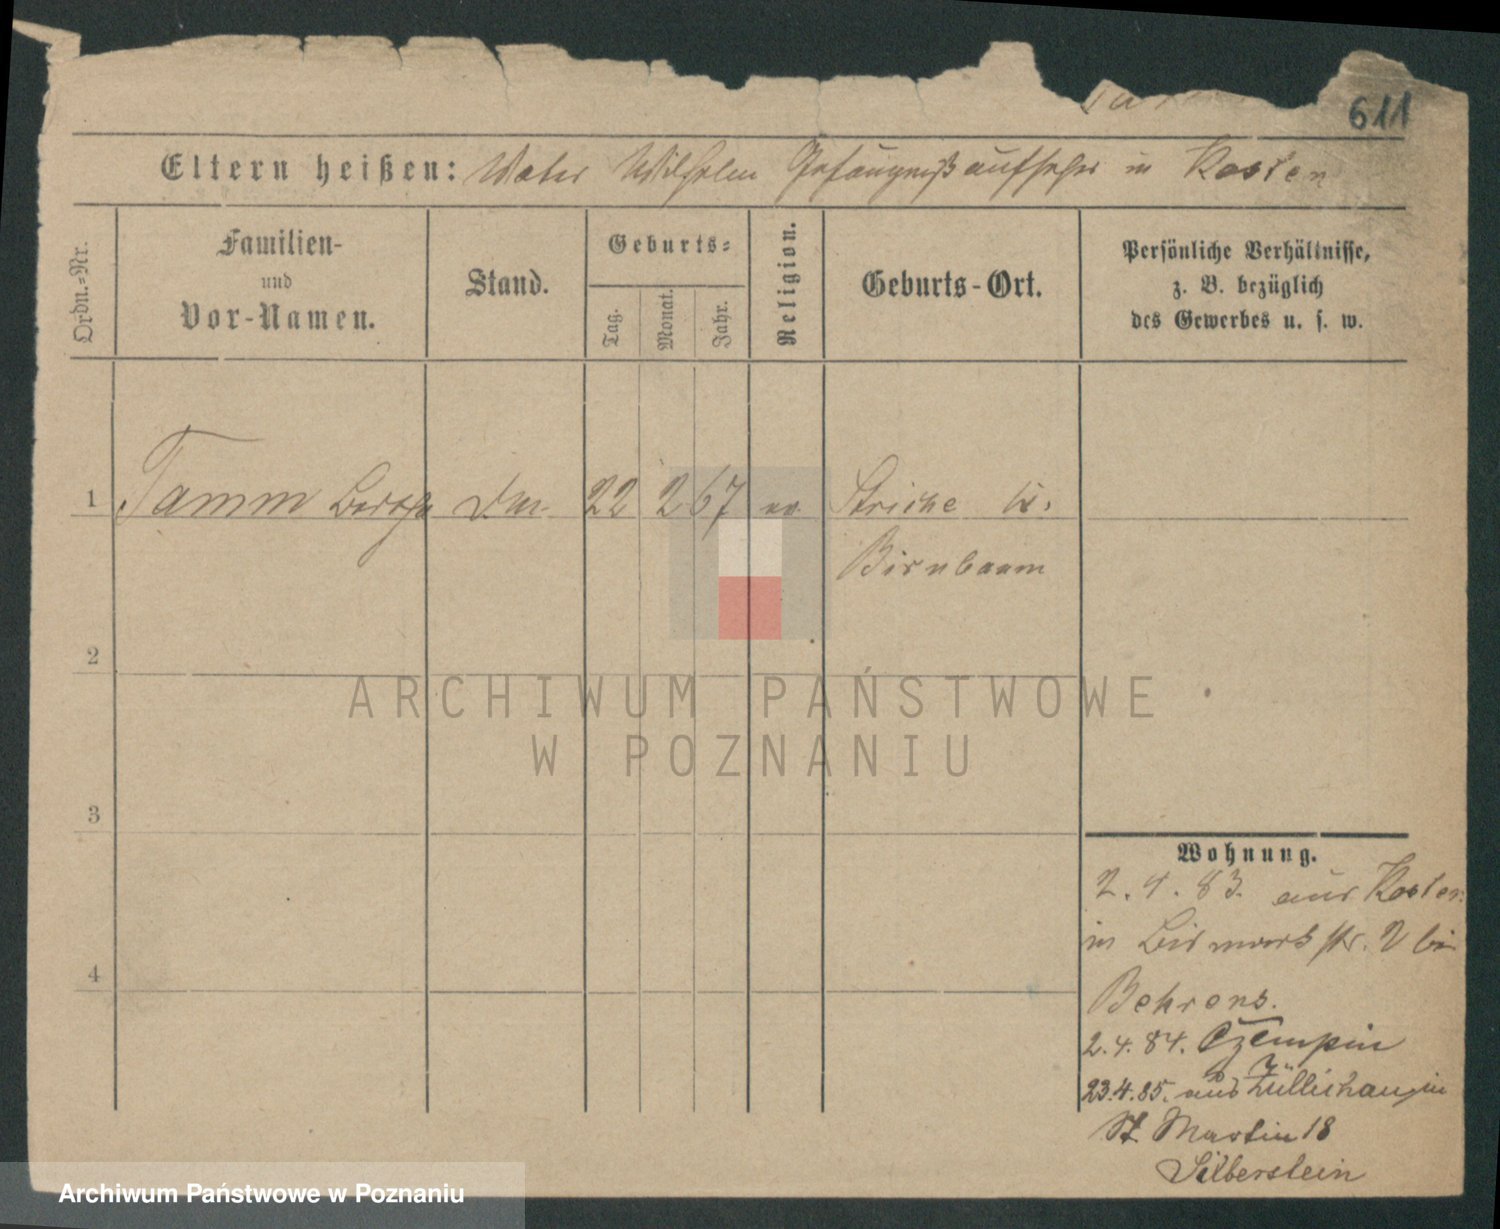 611
Eltern heißen: Vater Wilhelm Gefängnißaufseher in Kosten
Ordn.=Nr.
Familien-
und
Vor-Namen.
Stand.
Geburts=
Tag.
Monat.
Jahr.
Religion.
Geburts-Ort.
Persönliche Verhältnisse,
z. B. bezüglich
des Gewerbes u. s. w.
1 Tamm Bertha 22 2 67 ev. Striche b.
Birnbaum
2
3
4
ARCHIWUM PAŃSTWOWE
W POZNANIU
Wohnung.
2.4.83. aus Kosten
in Bismarkstr. 2 bei
Behrens.
2.4.84. Czempin
23.4.85. aus Züllichau in
St Martin 18
Silberstein
Archiwum Państwowe w Poznaniu